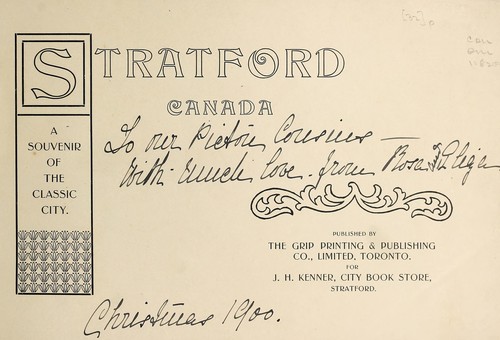 STRATFORD
CANADA
A
SOUVENIR
OF THE
CLASSIC
CITY.
To our Picton Cousins —
With much love. from Rosa
PUBLISHED BY
THE GRIP PRINTING & PUBLISHING
CO., LIMITED, TORONTO.
FOR
J. H. KENNER, CITY BOOK STORE,
STRATFORD.
Christmas 1900.